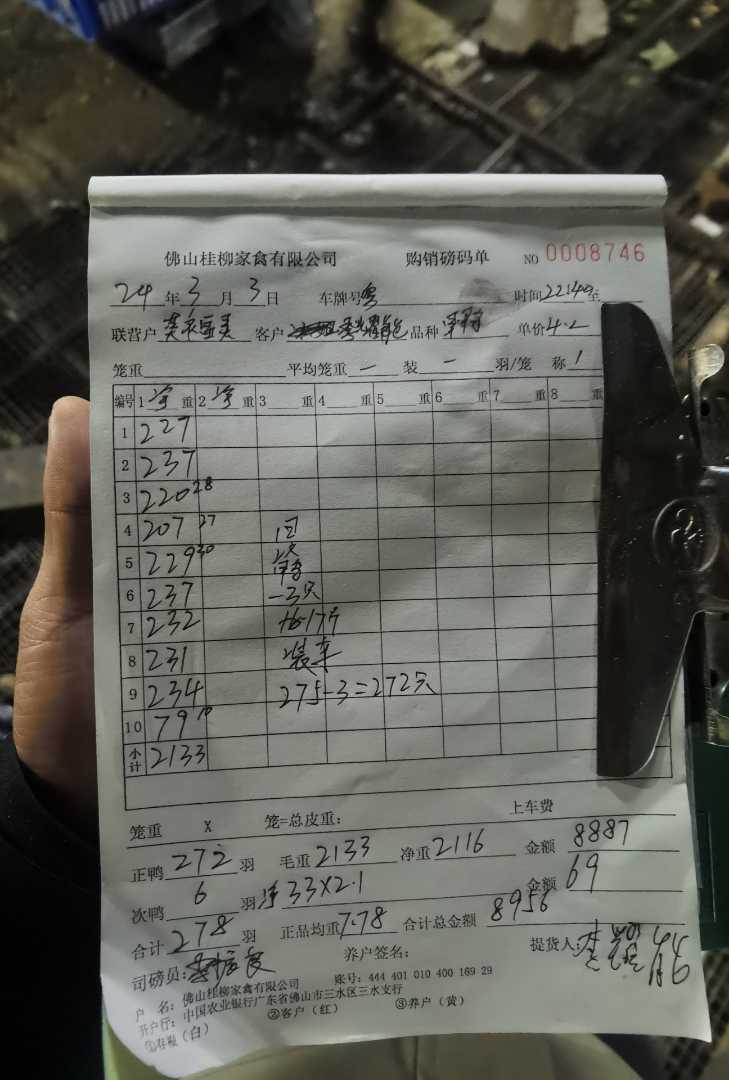 佛山桂柳家禽有限公司 购销磅码单 NO 0008746
24年3月3日 车牌号粤 时间22:40至
联营户 客户 品种 单价4.2
笼重 平均笼重 一 装 一 羽/笼 称 1
编号 1 净重 2 净重 3 重 4 重 5 重 6 重 7 重 8 重
1 227
2 237
3 220 28
4 207 27 回
5 229 30
6 237 -3只
7 232 -17斤
8 231 装车
9 234 275-3=272只
10 79 10
小计 2133
笼重 X 笼=总皮重: 上车费
正鸭 272 羽 毛重 2133 净重 2116 金额 8887
次鸭 6 羽 净 33X2.1 金额 69
合计 278 羽 正品均重 7.78 合计总金额 8956
司磅员: 养户签名: 提货人: 李
户 名: 佛山桂柳家禽有限公司 账号: 444 401 010 400 169 29
开户行: 中国农业银行广东省佛山市三水区三水支行
①存根(白) ②客户(红) ③养户(黄)